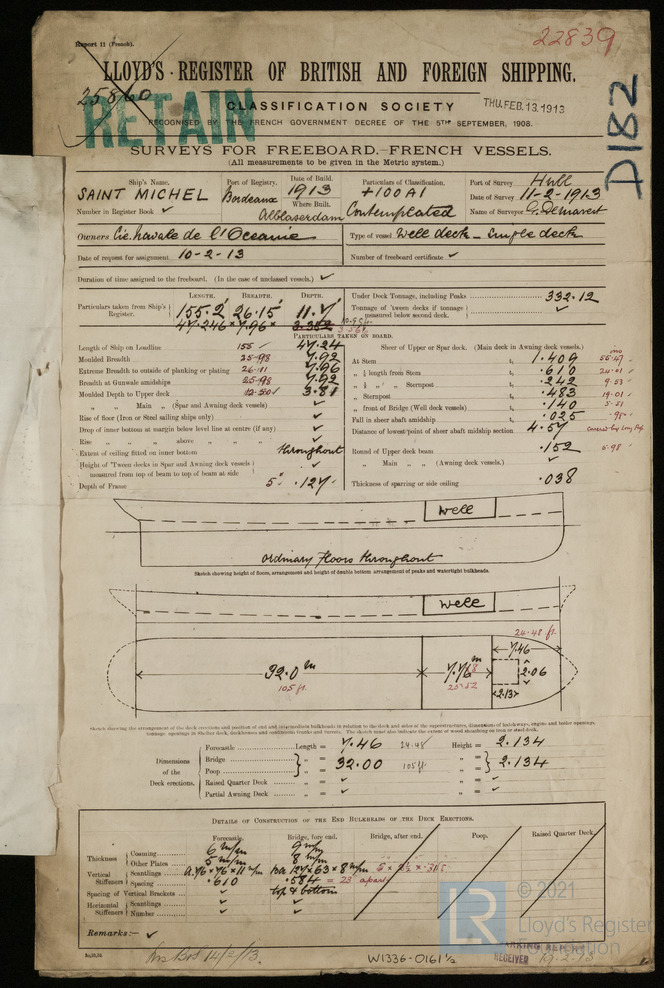 Report 11 (French).
22839
LLOYD'S REGISTER OF BRITISH AND FOREIGN SHIPPING.
25860
RETAIN
CLASSIFICATION SOCIETY
THU.FEB.13.1913
D182
RECOGNISED BY THE FRENCH GOVERNMENT DECREE OF THE 5TH SEPTEMBER, 1908.
SURVEYS FOR FREEBOARD.—FRENCH VESSELS.
(All measurements to be given in the Metric system.)
Ship's Name. Port of Registry. Date of Build. Particulars of Classification. Port of Survey Hull
SAINT MICHEL Bordeaux 1913 +100A1 Date of Survey 11-2-1913
Where Built.
Number in Register Book Alblasserdam Contemplated Name of Surveyor
Owners Cie. Navale de l'Oceanie Type of vessel Well deck - Single deck
Date of request for assignment 10-2-13 Number of freeboard certificate
Duration of time assigned to the freeboard. (In the case of unclassed vessels.)
LENGTH. BREADTH. DEPTH.
Particulars taken from Ship's Register. 155.2 26.15 11.7
47.246 × 7.96 × 3.352
Under Deck Tonnage, including Peaks 332.12
Tonnage of 'tween decks if tonnage measured below second deck.
PARTICULARS TAKEN ON BOARD.
Length of Ship on Loadline 155 47.24
Moulded Breadth 25-98 7.92
Extreme Breadth to outside of planking or plating 26.11 7.96
Breadth at Gunwale amidships 25-98 7.92
Moulded Depth to Upper deck 12.50 3.81
" " Main " (Spar and Awning deck vessels)
Rise of floor (Iron or Steel sailing ships only)
Drop of inner bottom at margin below level line at centre (if any)
Rise " " " above " " "
Extent of ceiling fitted on inner bottom throughout
Height of 'Tween decks in Spar and Awning deck vessels
measured from top of beam to top of beam at side
Depth of Frame 5" .127
Sheer of Upper or Spar deck. (Main deck in Awning deck vessels).
At Stem 1.409 55.47
" ⅛ length from Stem .610 24.01
" ⅛ " " Sternpost .242 9.53
" Sternpost .483 19.01
" front of Bridge (Well deck vessels) .140 5.51
Fall in sheer abaft amidships .025 .98
Distance of lowest point of sheer abaft midship section 4.57 covered by Long Poop
Round of Upper deck beam .152 5.98
" Main " " (Awning deck vessels.)
Thickness of sparring or side ceiling .038
Well
Ordinary Floors throughout
Sketch showing height of floors, arrangement and height of double bottom arrangement of peaks and watertight bulkheads.
Well
24.48 ft.
7.46
32.0 m
105 ft.
7.76 m
25.52
2.06
2.13
Sketch showing the arrangement of the deck erections and position of end and intermediate bulkheads in relation to the deck and sides of the superstructures, dimensions of hatchways, engine and boiler openings,
tonnage openings in Shelter deck, deckhouses and continuous trunks and turrets. The sketch must also indicate the extent of wood sheathing on iron or steel deck.
Dimensions of the Deck erections.
Forecastle Length = 7.46 24.48 Height = 2.134
Bridge
Poop " = 32.00 105 ft. " = 2.134
Raised Quarter Deck " = " =
Partial Awning Deck " = " =
DETAILS OF CONSTRUCTION OF THE END BULKHEADS OF THE DECK ERECTIONS.
Forecastle. Bridge, fore end. Bridge, after end. Poop. Raised Quarter Deck.
Thickness Coaming 6 m/m 9 m/m
Other Plates 5 m/m 8 m/m
Vertical Stiffeners Scantlings 127 × 63 × 8 m/m
Spacing .610 .584 = 23 apart
Spacing of Vertical Brackets top & bottom
Horizontal Stiffeners Scantlings
Number
Remarks:—
14/2/13.
W1336-0161½
RECEIVED
LR
© 2021
Lloyd's Register
Foundation